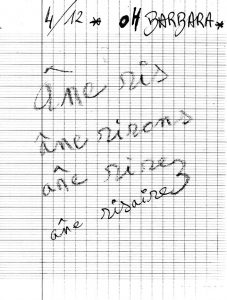 4/12 * OH BARBARA *
âne ris
âne rirons
âne rirez
âne risairez